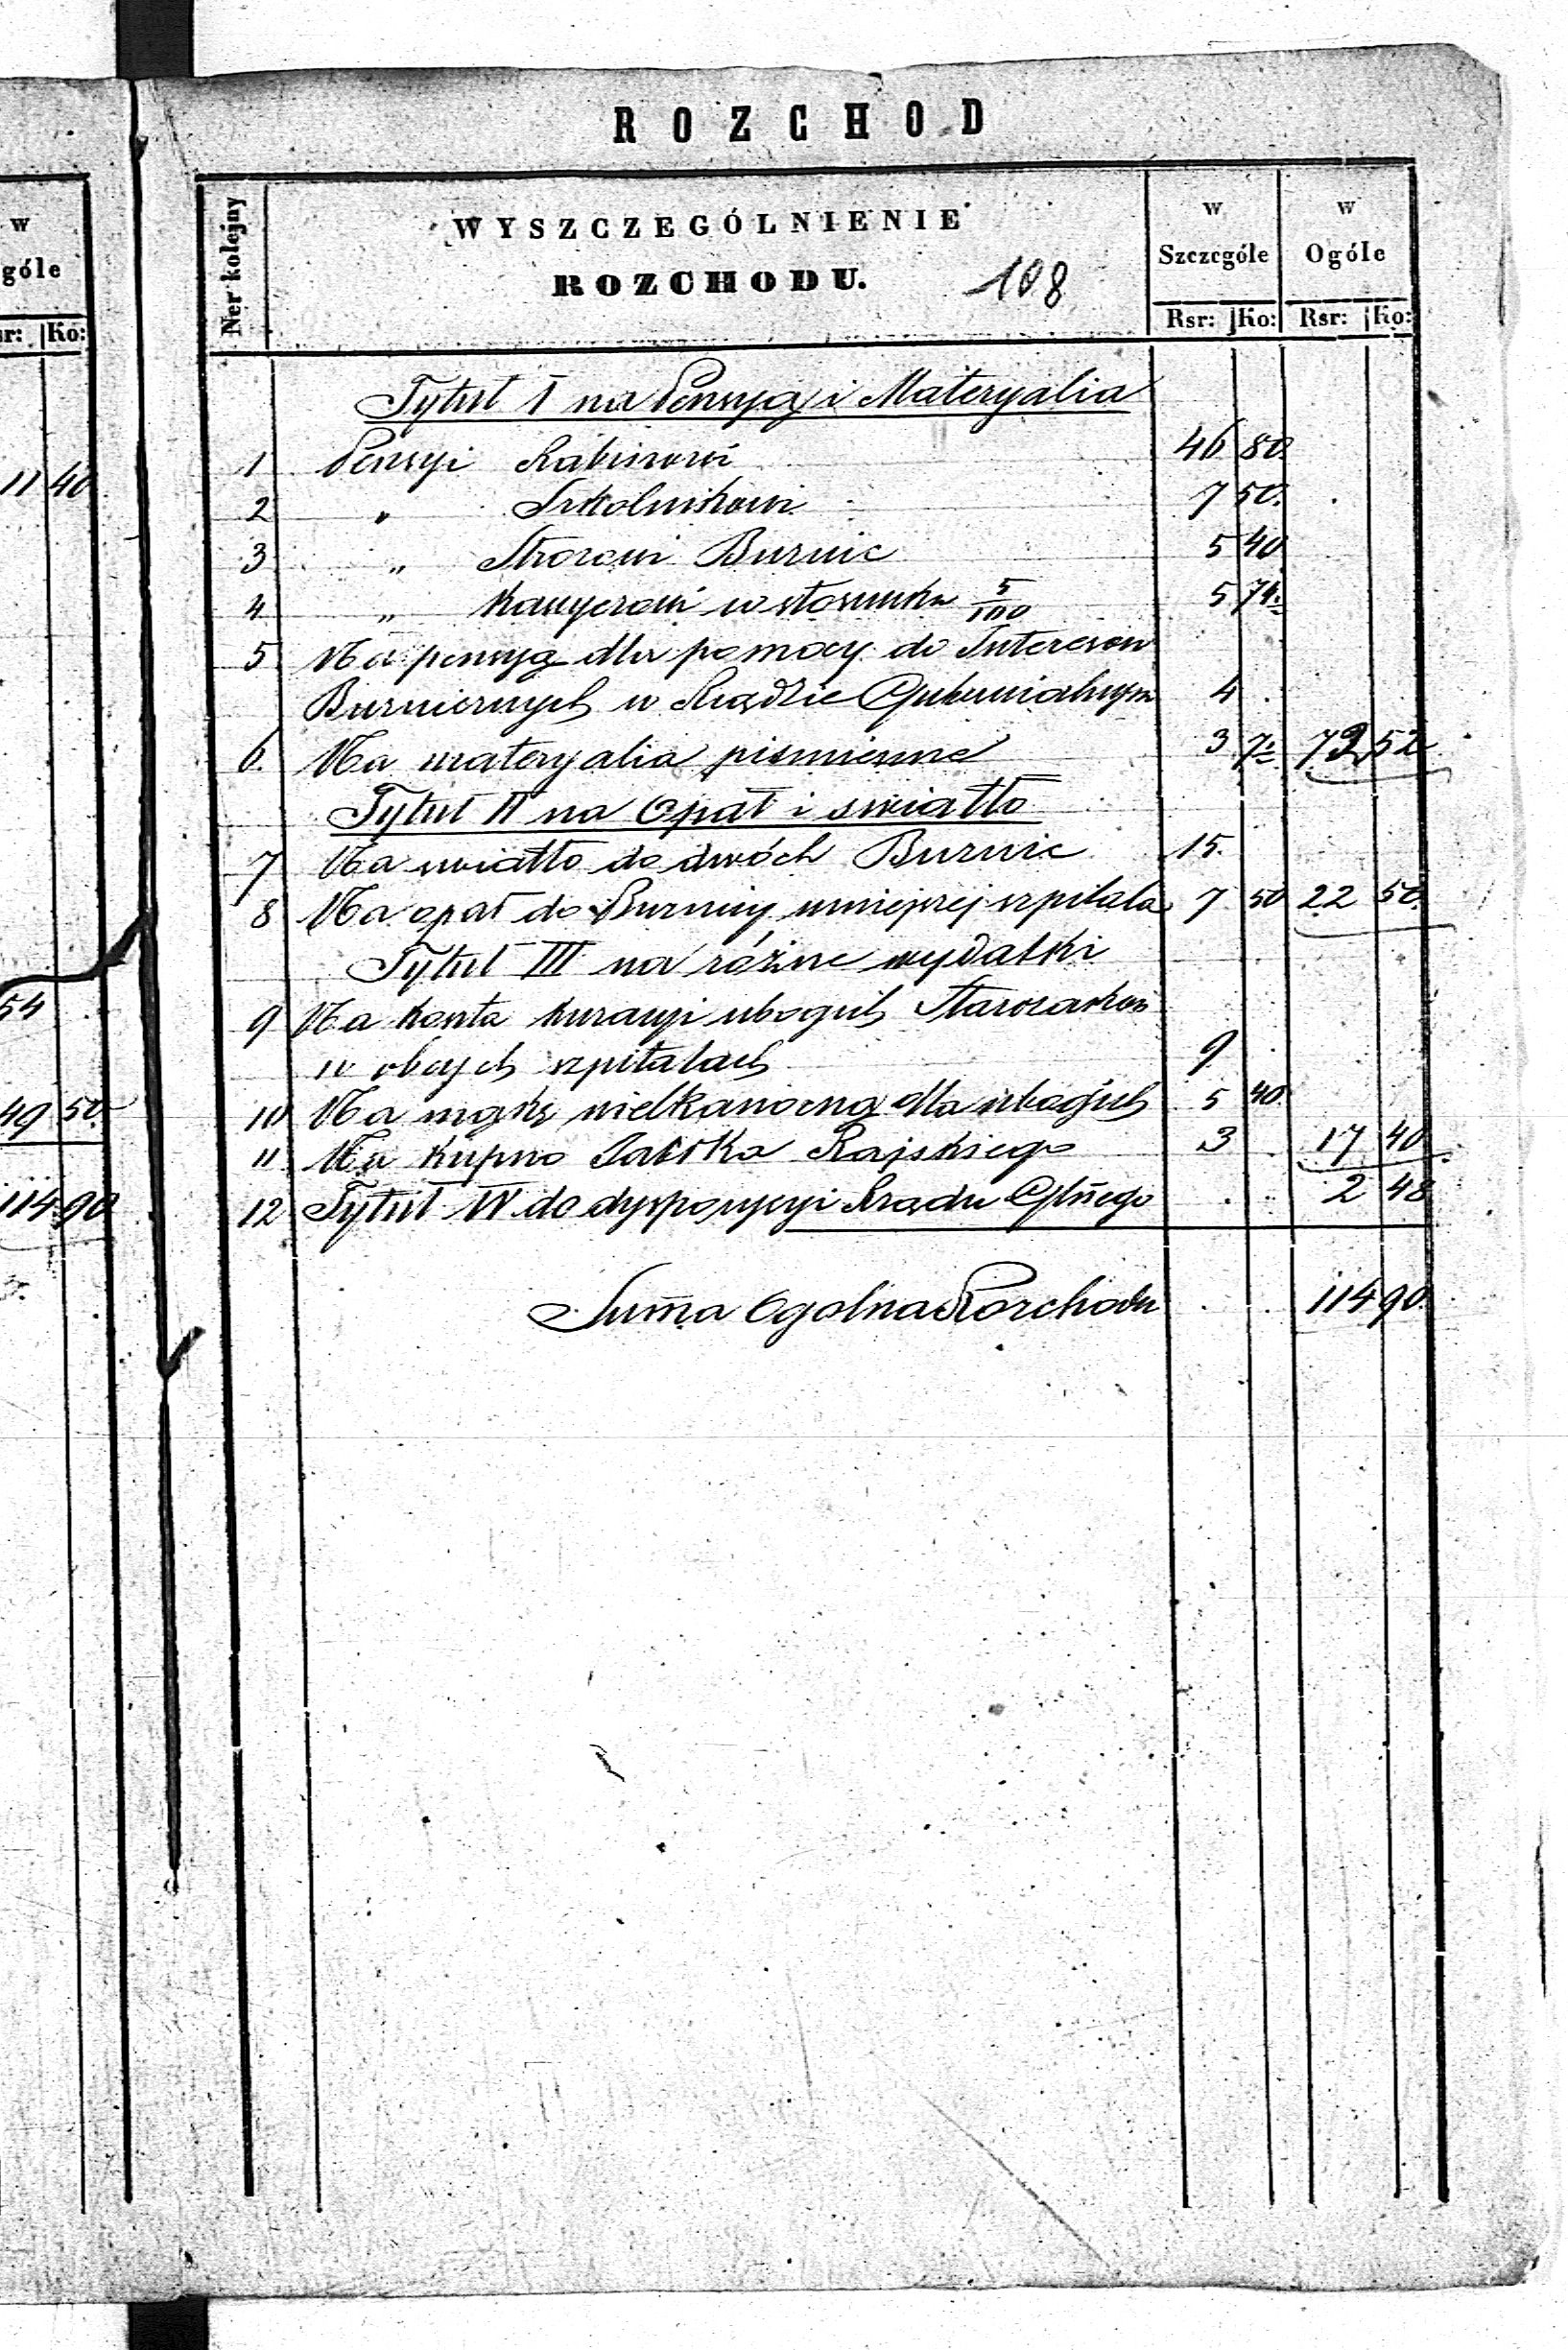 w
góle
sr: Ko:
11 40
54
49 50.
114 90
ROZCHOD
Ner kolejny
WYSZCZEGÓLNIENIE
ROZCHODU. 108
w Szczególe
w Ogóle
Rsr: Ko: Rsr: Ko:
Tytuł I na Pensyą i Materyalia
1 Pensyi Rabinowi 46 80.
2 " Szkolnikowi 7 50.
3 " Stróżowi Bużnic 5 40
4 " Kassyerowi w stosunku 5/100 5 74
5 Na pensyą dla pomocy do Interesów
Bużnicznych w Rządzie Gubernialnym 4
6. Na materyalia piśmienne 3 7 72 52
Tytuł II na Opał i światło
7 Na światło do dwóch Bużnic 15.
8 Na opał do Bużnicy mniejszej szpitala 7 50 22 50.
Tytuł III na różne wydatki
9 Na koszta kuracyi ubogich Starozakon
w obcych szpitalach 9
10 Na mąkę wielkanocną dla ubogich 5 40.
11 Na kupno Jabłka Rajskiego 3 17 40
12 Tytuł IV do dyspozycyi Rządu Glnego 2 48
Suma Ogolna Rozchodu 114 90.